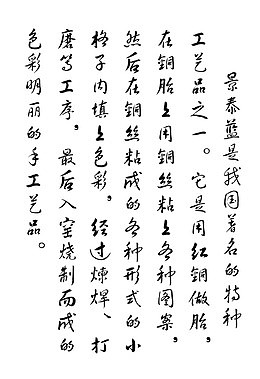 景泰蓝是我国著名的特种
工艺品之一。它是用红铜做胎，
在铜胎上用铜丝粘上各种图案，
然后在铜丝粘成的各种形式的小
格子内填上色彩，经过煉焊、打
磨等工序，最后入窑烧制而成的
色彩明丽的手工艺品。